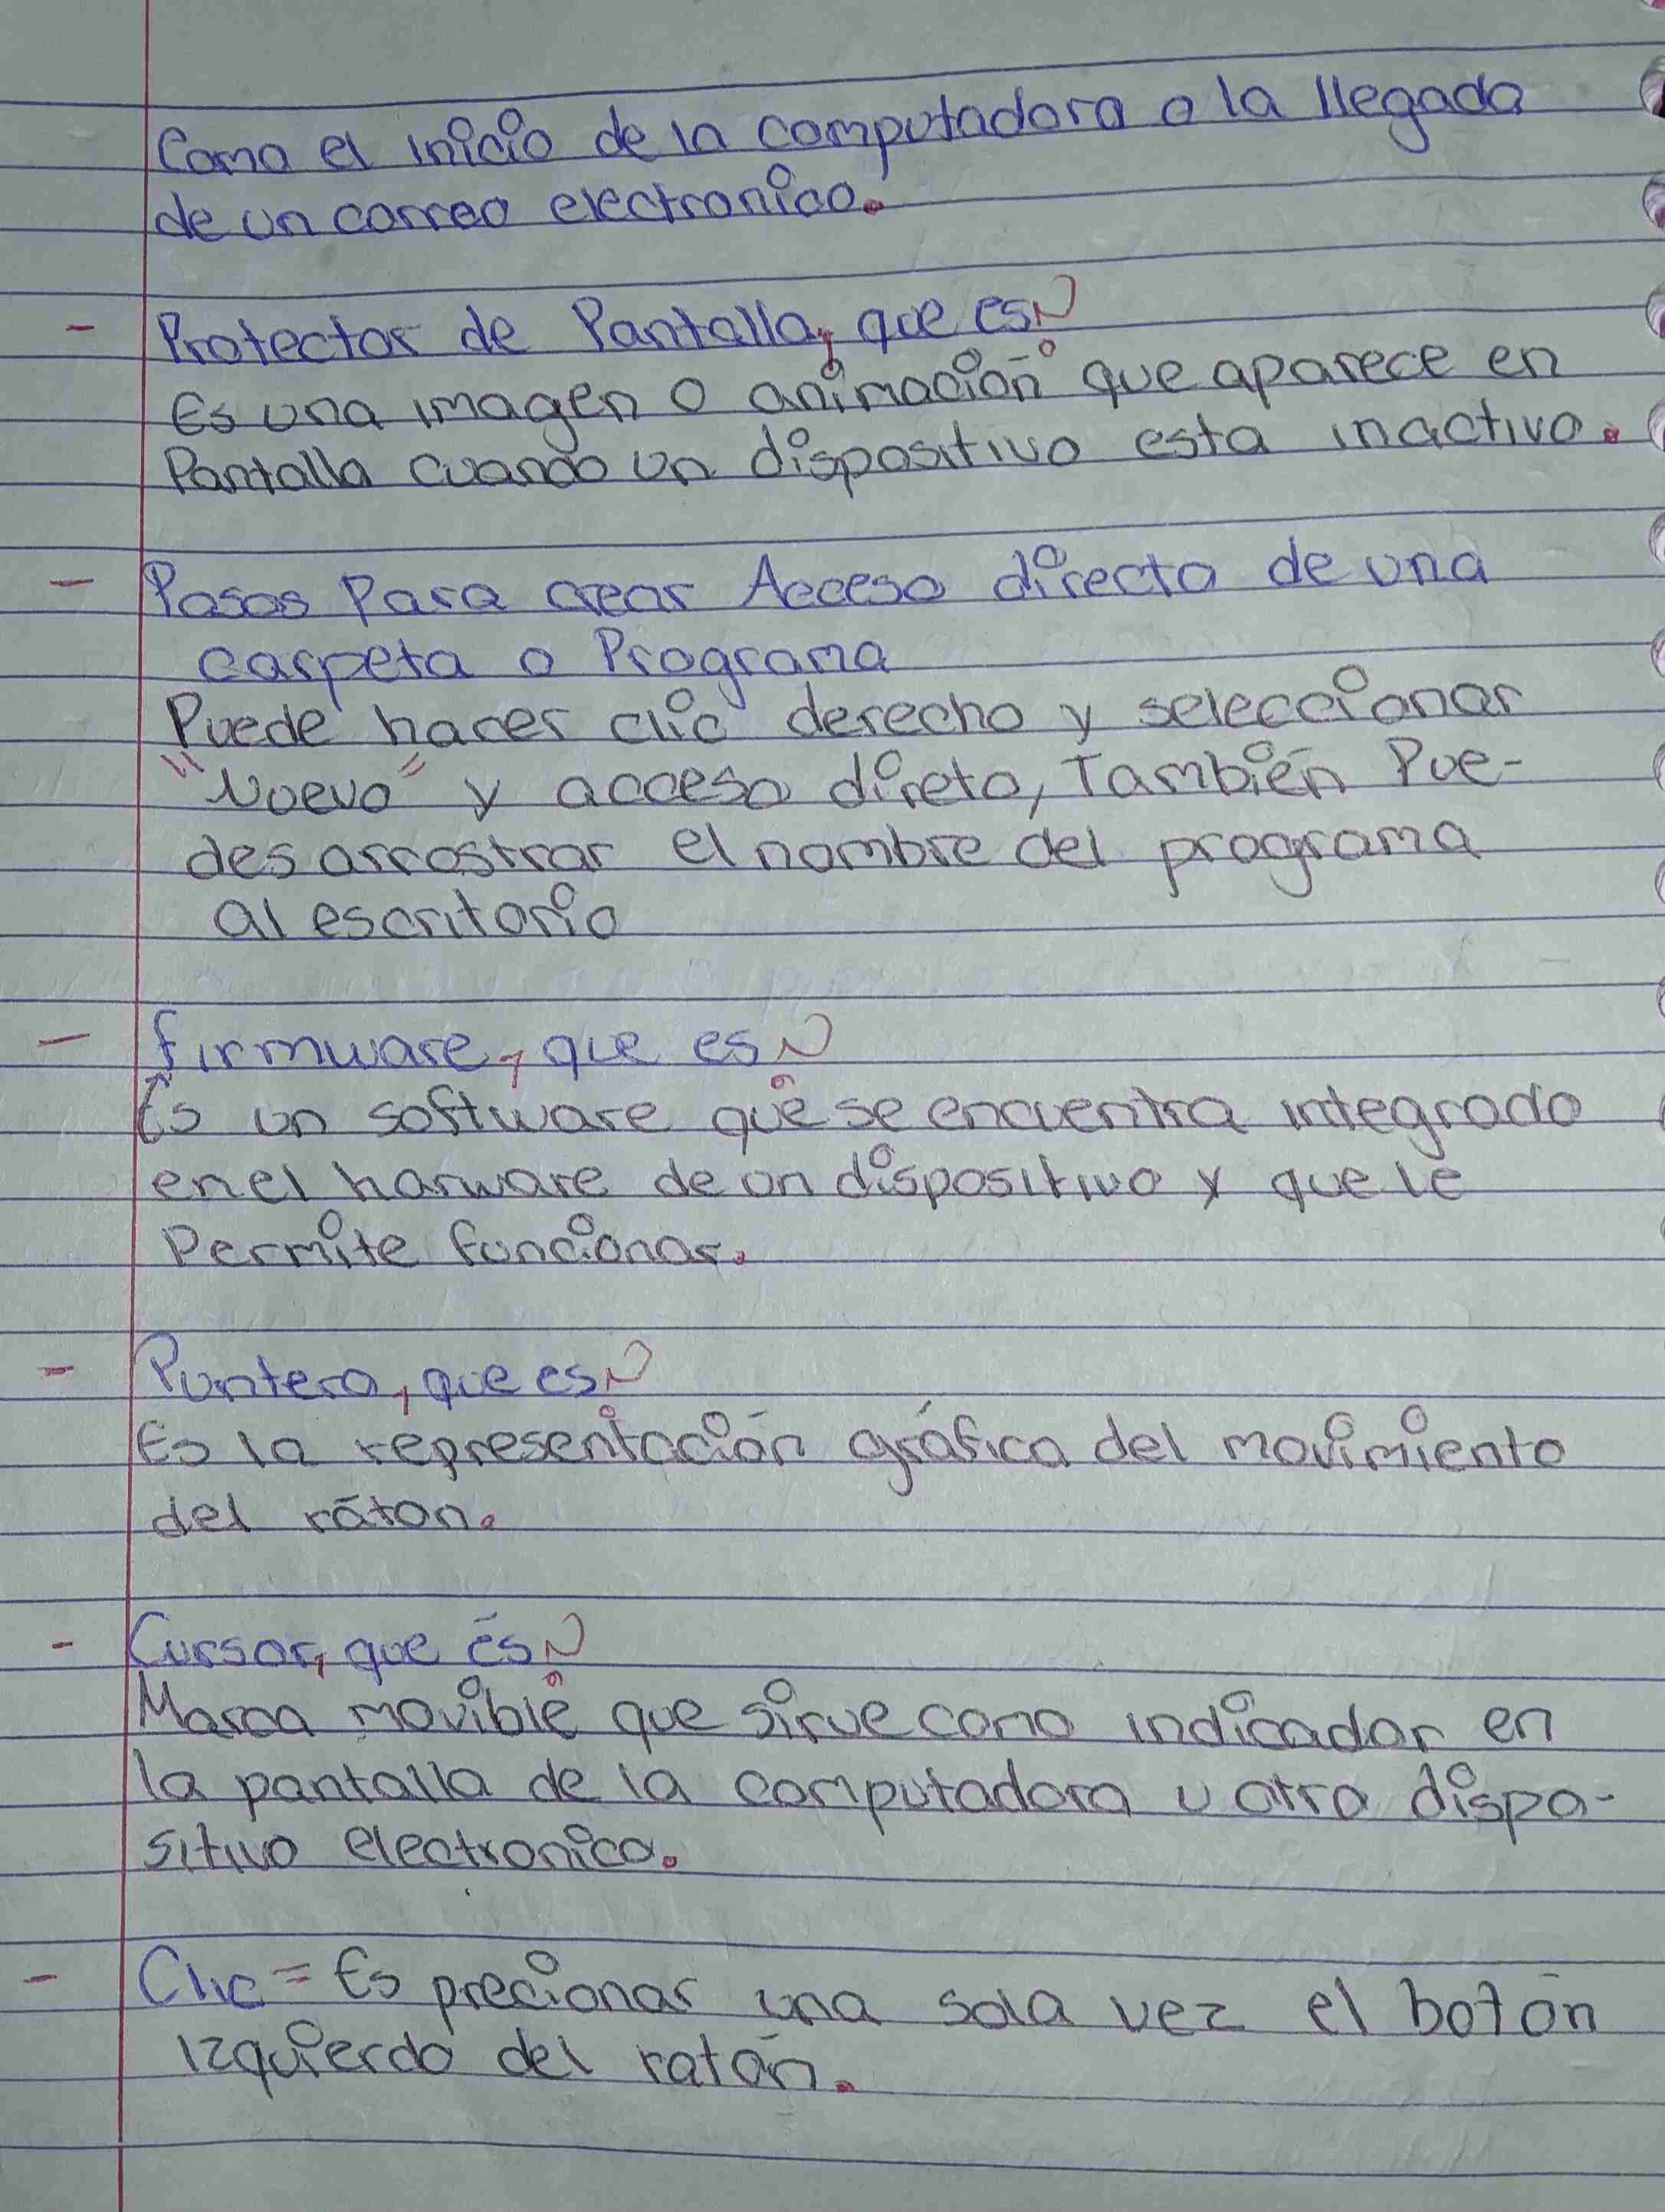 Como el inicio de la computadora o la llegada
de un correo electronico.
- Protector de Pantalla, que es?
Es una imagen o animación que aparece en
Pantalla cuando un dispositivo esta inactivo.
- Pasos Para crear Acceso directo de una
carpeta o Programa
Puede hacer clic derecho y seleccionar
"Nuevo" y acceso direto, También Pue-
des arrastrar el nombre del programa
al escritorio
- firmware, que es?
Es un software que se encuentra integrado
en el harware de un dispositivo y que le
Permite funcionar.
- Puntero, que es?
Es la representación gráfica del movimiento
del ráton.
- Cursor, que és?
Marca movible que sirve como indicador en
la pantalla de la computadora u otro dispo-
sitivo electronico.
- Clic = Es precionar una sola vez el botón
izquierdo del ratón.